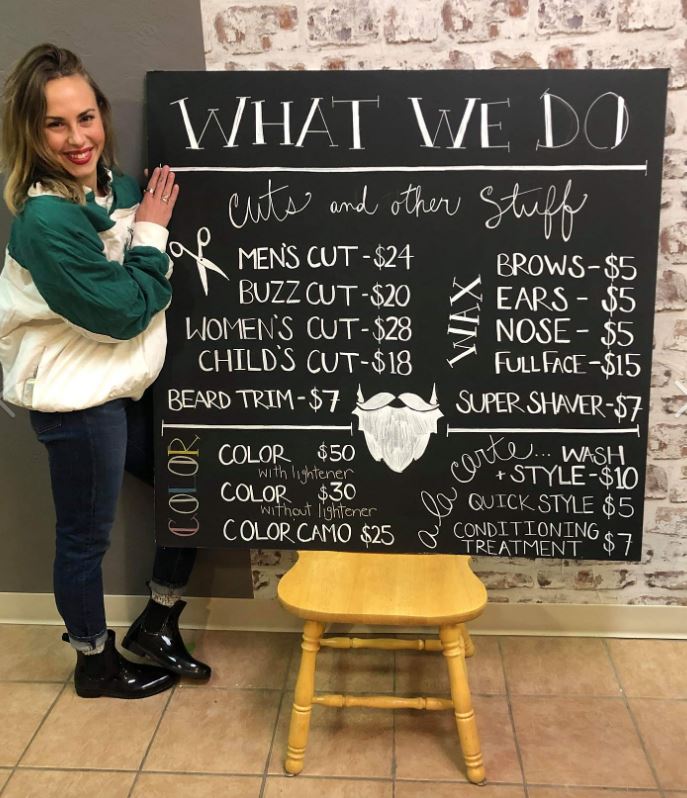 WHAT WE DO
Cuts and other Stuff
MEN'S CUT - $24
BUZZ CUT - $20
WOMEN'S CUT - $28
CHILD'S CUT - $18
BEARD TRIM - $7
WAX
BROWS - $5
EARS - $5
NOSE - $5
FULL FACE - $15
SUPER SHAVER - $7
COLOR
COLOR $50
with lightener
COLOR $30
without lightener
COLOR CAMO $25
a la carte... WASH
+ STYLE - $10
QUICK STYLE $5
CONDITIONING
TREATMENT $7